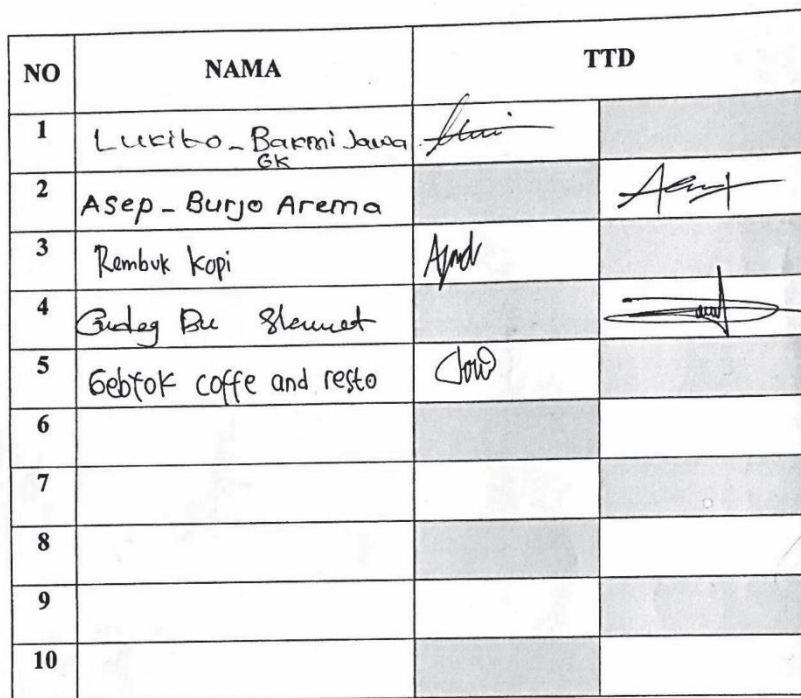 NO NAMA TTD
1 Lukito - Bakmi Jawa
GK
2 Asep - Burjo Arema
3 Rembuk Kopi
4 Gudeg Bu Slamet
5 Gebyok coffe and resto
6
7
8
9
10